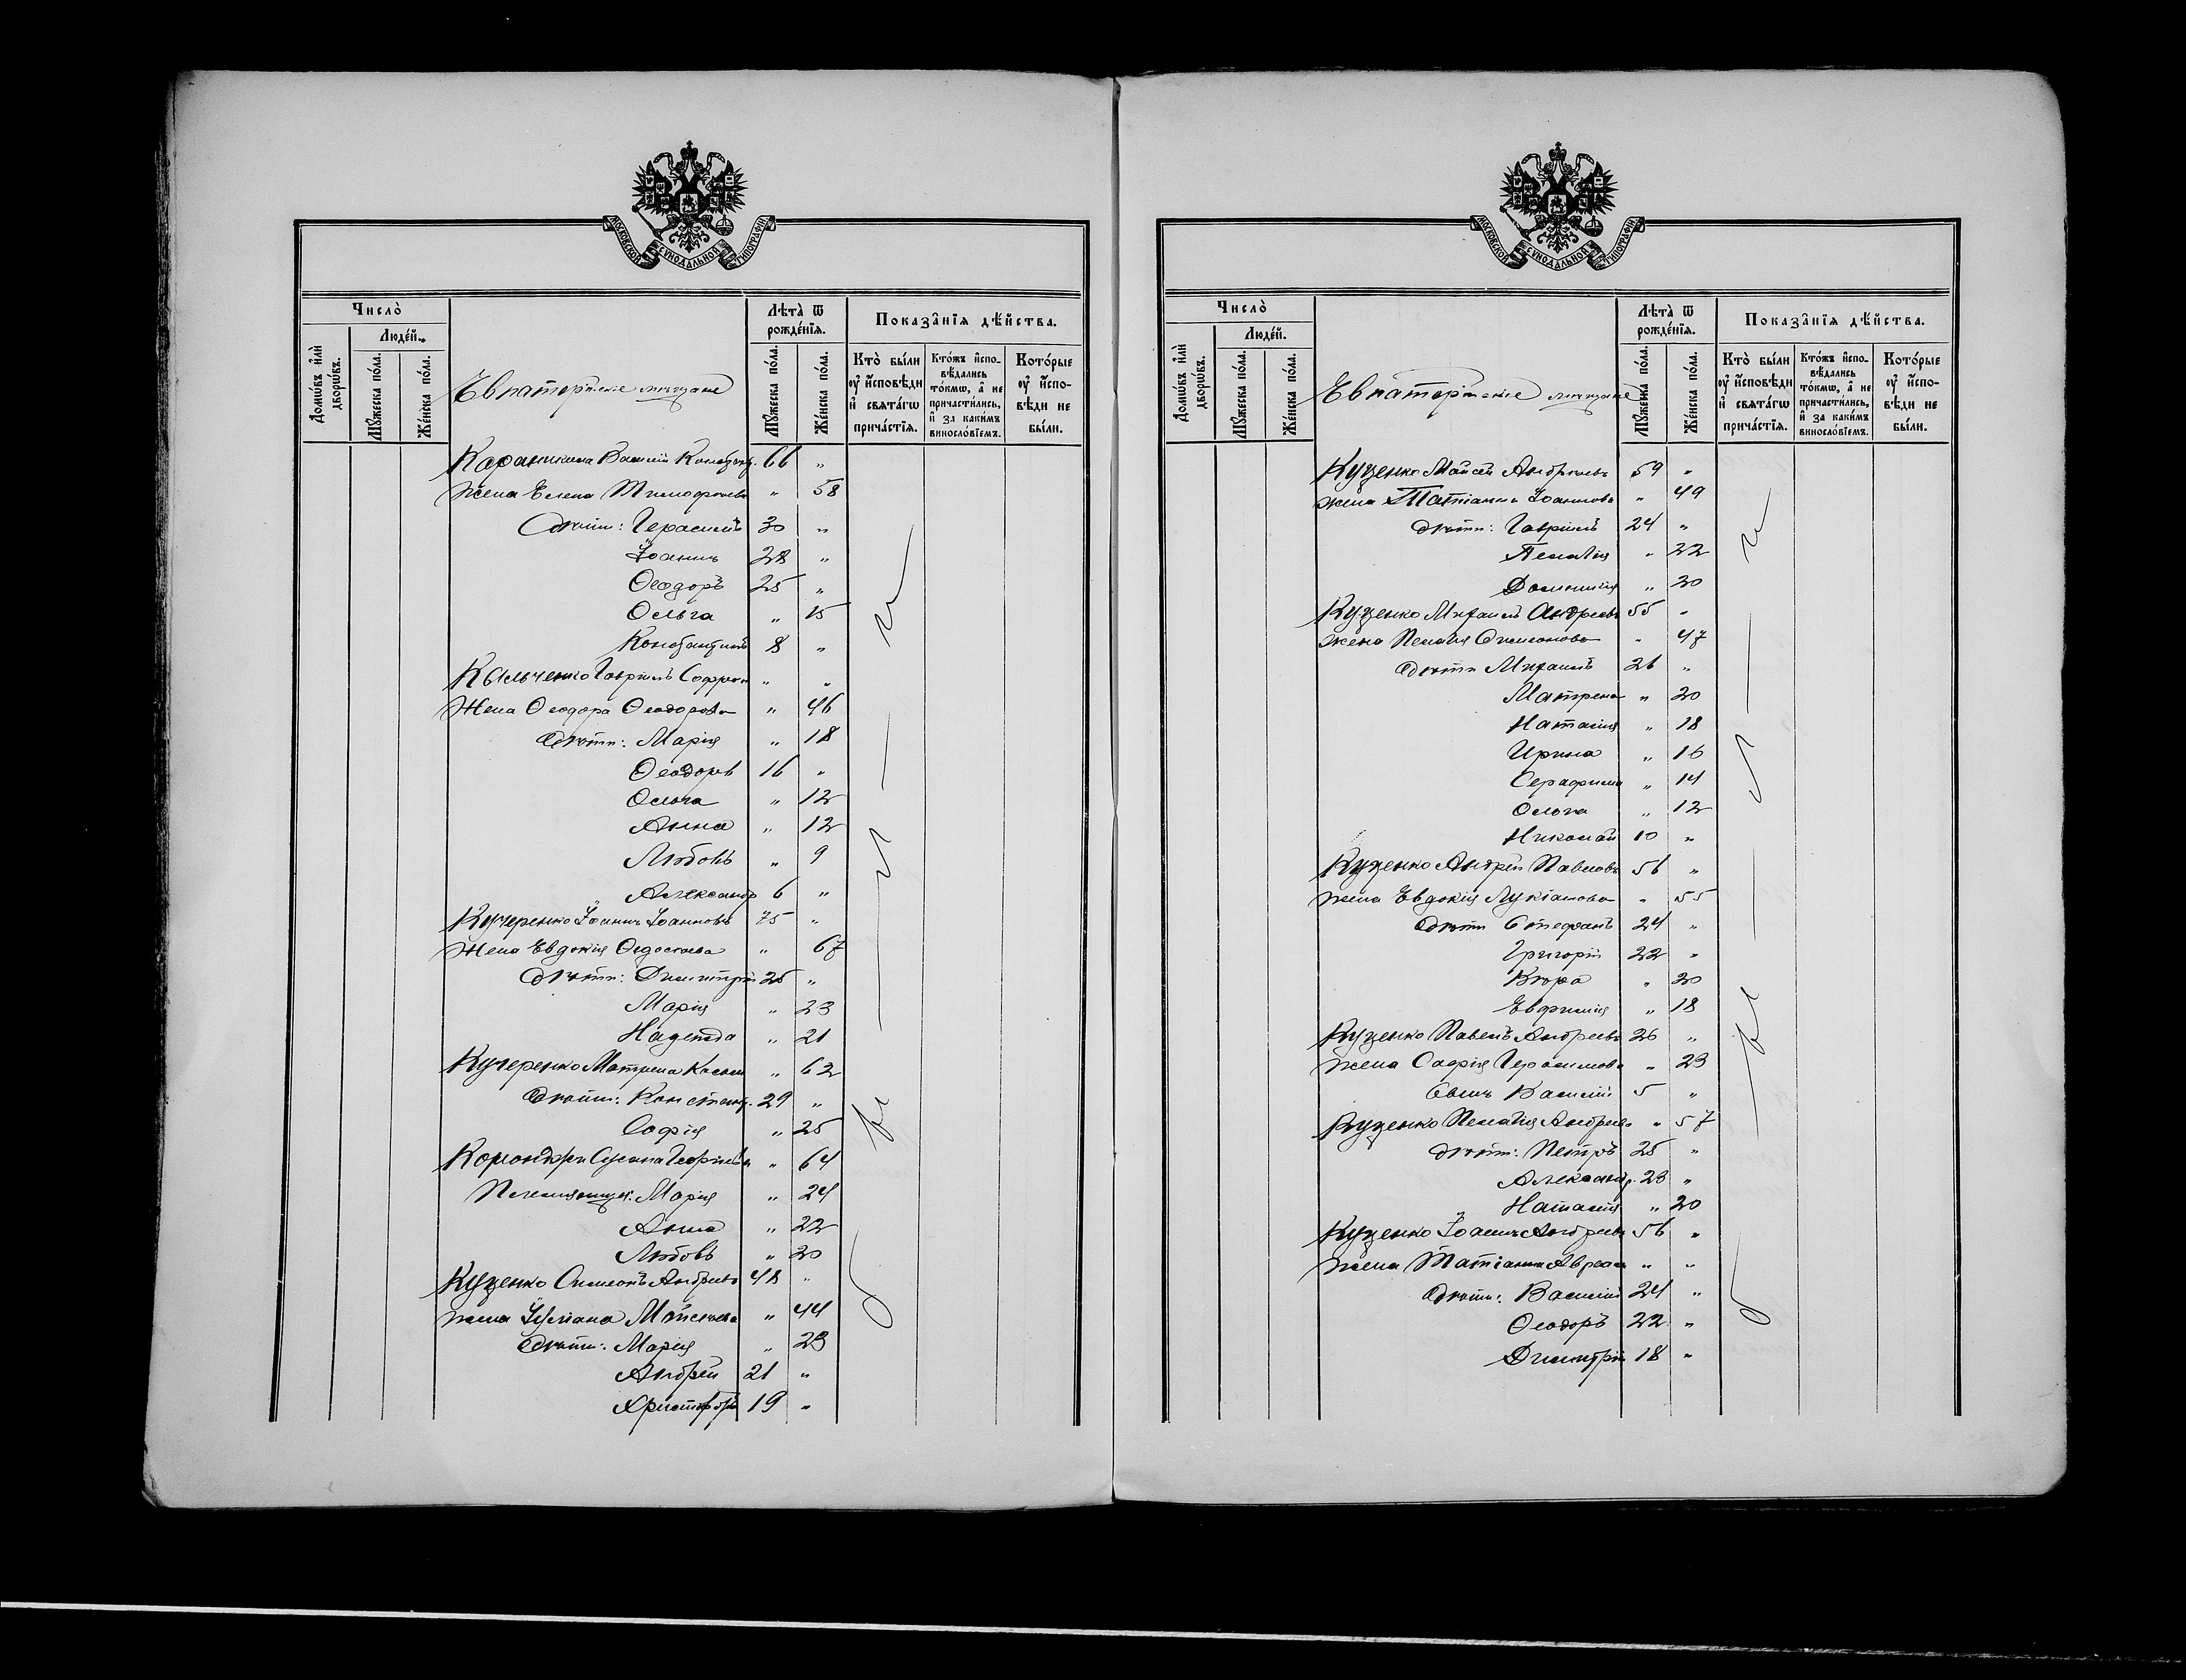 МОСКОВСКОЙ СѴНОДАЛЬНОЙ ТИПОГРАФІИ
Число̀
Люде́й.
Домѡ́въ и҆лѝ дворѡ́въ.
Мꙋ́жеска по́ла.
Же́нска по́ла.
Евпаторійскіе мѣщане
Лѣта̀ ѿ рожде́нїѧ.
Мꙋ́жеска по́ла.
Же́нска по́ла.
Показа̑нїѧ дѣ́йства.
Кто̀ бы́ли
оу҆ и҆сповѣ́ди
и҆ свѧта́гѡ
прича́стїѧ.
Кто́жъ и҆спо-
вѣ́дались
то́кмѡ, а҆ не
причасти́лись,
и҆ за каки́мъ
винослові́емъ.
Кото́рые
оу҆ и҆спо-
вѣ́ди не
бы́ли.
Василій 66 „
Жена Елена Тимофѣева „ 58
Дѣти: Герасимъ 30 „
Іоаннъ 28 „
Ѳеодоръ 25 „
Ольга „ 15
Константинъ 8 „
Гавріилъ Софрон „ „
Жена Ѳеодора Ѳеодорова „ 46
Дѣти: Марія „ 18
Ѳеодоръ 16 „
Ольга „ 12
Анна „ 12
Любовь „ 9
Александр 6 „
Кучеренко Іоаннъ Іоанновъ 75 „
Жена Евдокія Ѳедосѣева „ 67
Дѣти: Димитрій 25 „
Марія „ 23
Надежда „ 21
Кучеренко Матрена „ 62
Дѣти: Констант. 29 „
Софія „ 25
Сусана Георгіева „ 64
Племянницы: Марія „ 24
Анна „ 22
Любовь „ 20
Куценко Симеонъ Андреевъ 48 „
Жена Іуліана Моисѣева „ 44
Дѣти: Марія „ 23
Андрей 21 „
Христофоръ 19 „
МОСКОВСКОЙ СѴНОДАЛЬНОЙ ТИПОГРАФІИ
Число̀
Люде́й.
Домѡ́въ и҆лѝ дворѡ́въ.
Мꙋ́жеска по́ла.
Же́нска по́ла.
Евпаторійскіе мѣщане
Лѣта̀ ѿ рожде́нїѧ.
Мꙋ́жеска по́ла.
Же́нска по́ла.
Показа̑нїѧ дѣ́йства.
Кто̀ бы́ли
оу҆ и҆сповѣ́ди
и҆ свѧта́гѡ
прича́стїѧ.
Кто́жъ и҆спо-
вѣ́дались
то́кмѡ, а҆ не
причасти́лись,
и҆ за каки́мъ
винослові́емъ.
Кото́рые
оу҆ и҆спо-
вѣ́ди не
бы́ли.
Куценко Моисей Андреевъ 59 „
Жена Татіана Іоаннова „ 49
Дѣти: Гавріилъ 24 „
Пелагія „ 22
Домникія „ 20
Куценко Михаилъ Андреевъ 55 „
Жена Пелагія Симеонова „ 47
Дѣти Михаилъ 21 „
Матрена „ 20
Наталія „ 18
Ирина „ 16
Серафима „ 14
Ольга „ 12
Николай 10 „
Куценко Андрей Павловъ 56 „
Жена Евдокія Лукіанова „ 55
Дѣти Стефанъ 24 „
Григорій 22 „
Вѣра „ 20
Евфимія „ 18
Куценко Павелъ Андреевъ 26 „
Жена Софія Герасимова „ 23
Сынъ Василій 5 „
Куценко Пелагія Андреева „ 57
Дѣти: Петръ 25 „
Александр. 23 „
Наталія „ 20
Куценко Іоаннъ Андреевъ 56 „
Жена Татіана „ „
Дѣти: Василій 24 „
Ѳеодоръ 22 „
Димитрій 18 „